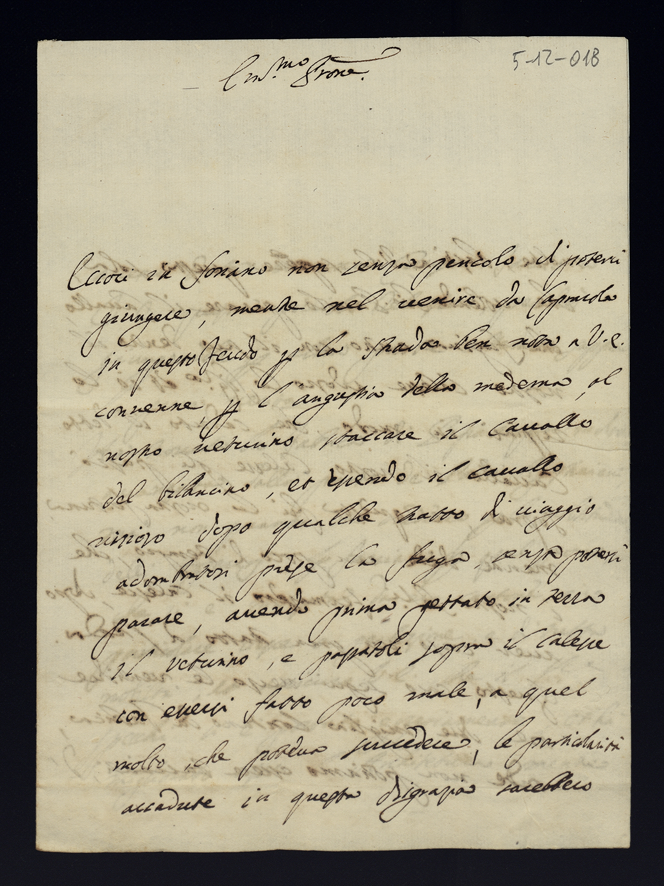 5-12-018
Em.mo Prone.
Eccoci in Sorino non senza pericolo di potervi
giungere, mentre nel venire da Capracola
in questo feudo p la strada ben nota a V. E.
convenne, p l'angustia della medema, al
nostro veturino staccare il Cavallo
del bilancino, et essendo il cavallo
vizioso dopo qualche tratto di viaggio
adombratosi prese la fuga, senza potersi
parare, avendo prima gettato in terra
il veturino, e passatoli sopra il calesse
con esersi fatto poco male, a quel
molto, che poteva succedere, le particolarità
accadute in questa disgrazia sarebbero